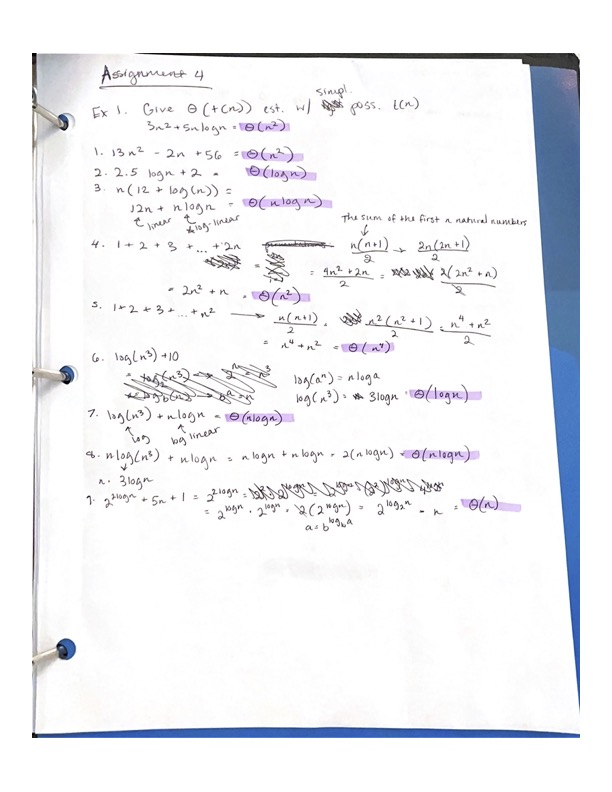 Assignment 4
simpl.
Ex 1. Give Θ(t(n)) est. w/ poss. t(n)
3n² + 5nlogn = Θ(n²)
1. 13n² - 2n + 56 = Θ(n²)
2. 2.5 logn + 2 = Θ(logn)
3. n(12 + log(n)) =
12n + nlogn = Θ(nlogn)
linear log-linear
the sum of the first n natural numbers
4. 1 + 2 + 3 + ... + 2n n(n+1)/2 → 2n(2n+1)/2
= = 4n² + 2n/2 = 2(2n² + n)/2
= 2n² + n
= Θ(n²)
5. 1 + 2 + 3 + ... + n² → n(n+1)/2 = n²(n²+1)/2 = n⁴ + n²/2
= n⁴ + n² = Θ(n⁴)
6. log(n³) + 10
log(aⁿ) = nloga
log(n³) = 3logn = Θ(logn)
7. log(n³) + nlogn = Θ(nlogn)
log log linear
8. nlog(n³) + nlogn = nlogn + nlogn = 2(nlogn) = Θ(nlogn)
n · 3logn
9. 2^2logn + 5n + 1 = 2^2logn =
= 2^logn · 2^logn = 2(2^logn) = 2^log₂n = n = Θ(n)
a = b^log_b a